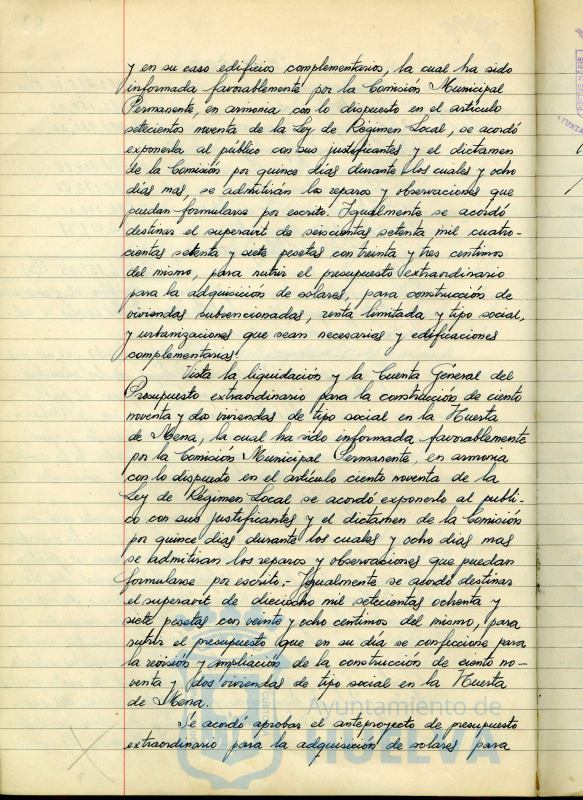 y en su caso edificios complementarios, la cual ha sido
informada favorablemente por la Comisión Municipal
Permanente, en armonia con lo dispuesto en el artículo
setecientos noventa de la Ley de Régimen Local, se acordó
exponerla al público con sus justificantes y el dictamen
de la Comisión por quince dias durante los cuales y ocho
dias mas, se admitirán los reparos y observaciones que
puedan formularse por escrito. Igualmente se acordó
destinar el superavit de seiscientas setenta mil cuatro-
cientas setenta y siete pesetas con treinta y tres centimos
del mismo, para nutrir el presupuesto extraordinario
para la adquisición de solares, para construcción de
viviendas subvencionadas, renta limitada y tipo social,
y urbanizaciones que sean necesarias y edificaciones
complementarias.
Vista la liquidación y la Cuenta General del
Presupuesto extraordinario para la construcción de ciento
noventa y dos viviendas de tipo social en la Huerta
de Mena, la cual ha sido informada favorablemente
por la Comisión Municipal Permanente, en armonia
con lo dispuesto en el artículo ciento noventa de la
Ley de Régimen Local se acordó exponerlo al publi-
co con sus justificantes y el dictamen de la Comisión
por quince dias durante los cuales y ocho dias mas
se admitiran los reparos y observaciones que puedan
formularse por escrito.- Igualmente se acordó destinar
el superavit de dieciocho mil setecientas ochenta y
siete pesetas con veinte y ocho centimos del mismo, para
nutrir el presupuesto que en su día se confeccione para
la revisión y ampliación de la construcción de ciento no-
venta y dos viviendas de tipo social en la Huerta
de Mena.
Se acordó aprobar el anteproyecto de presupuesto
extraordinario para la adquisición de solares para
Ayuntamiento de
HUELVA